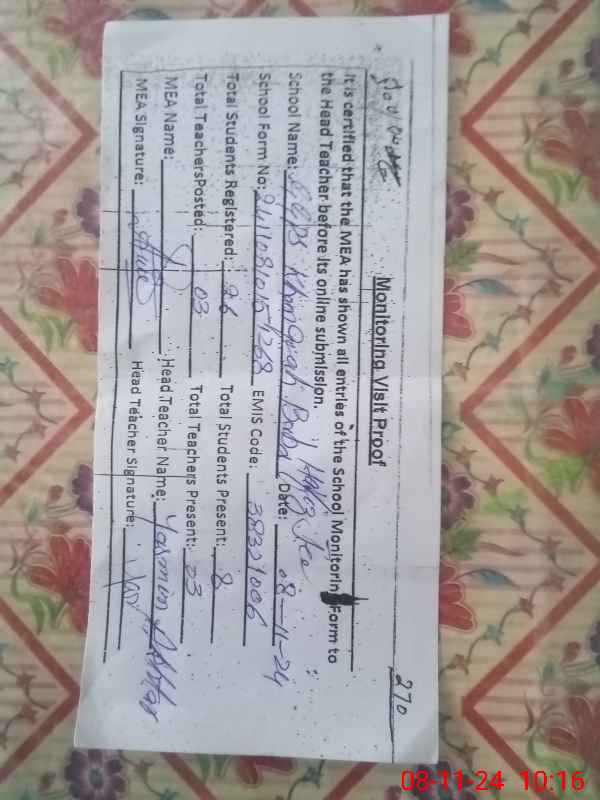 270
Monitoring Visit Proof
It is certified that the MEA has shown all entries of the School Monitoring Form to
the Head Teacher before its online submission.
School Name: Khanqah Date: 08-11-24
School Form No: EMIS Code: 38321006
Total Students Registered: 26 Total Students Present: 8
Total Teachers Posted: 03 Total Teachers Present: 03
MEA Name: Head Teacher Name: Yasmin Akhtar
MEA Signature: Head Teacher Signature:
08-11-24 10:16